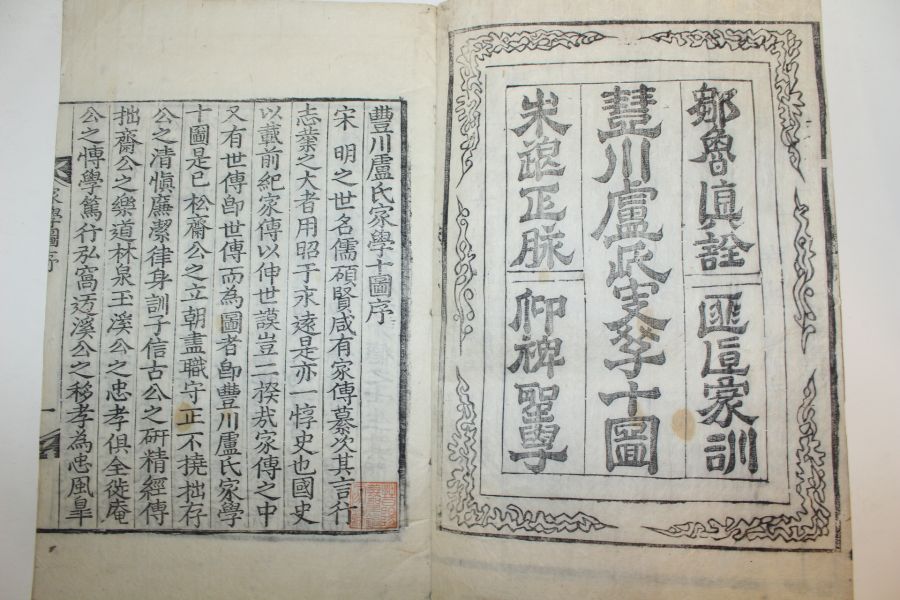 鄒魯眞詮 匪直家訓
豊川盧氏家學十圖
朱李正脉 仰裨聖學
豊川盧氏家學十圖序
宋 明之世名儒碩賢咸有家傳纂次其言行
志業之大者用昭于永遠是亦一惇史也國史
以載前紀家傳以伸世謨豈二揆哉家傳之中
又有世傳卽世傳而為圖者卽豐川盧氏家學
十圖是已松齋公之立朝盡職守正不撓拙存
公之清愼廉潔律身訓子信古公之硏精經傳
拙齋公之樂道林泉玉溪公之忠孝俱全徙庵
公之愽學篤行弘窩迃溪公之移孝為忠風皐
家學圖序
一